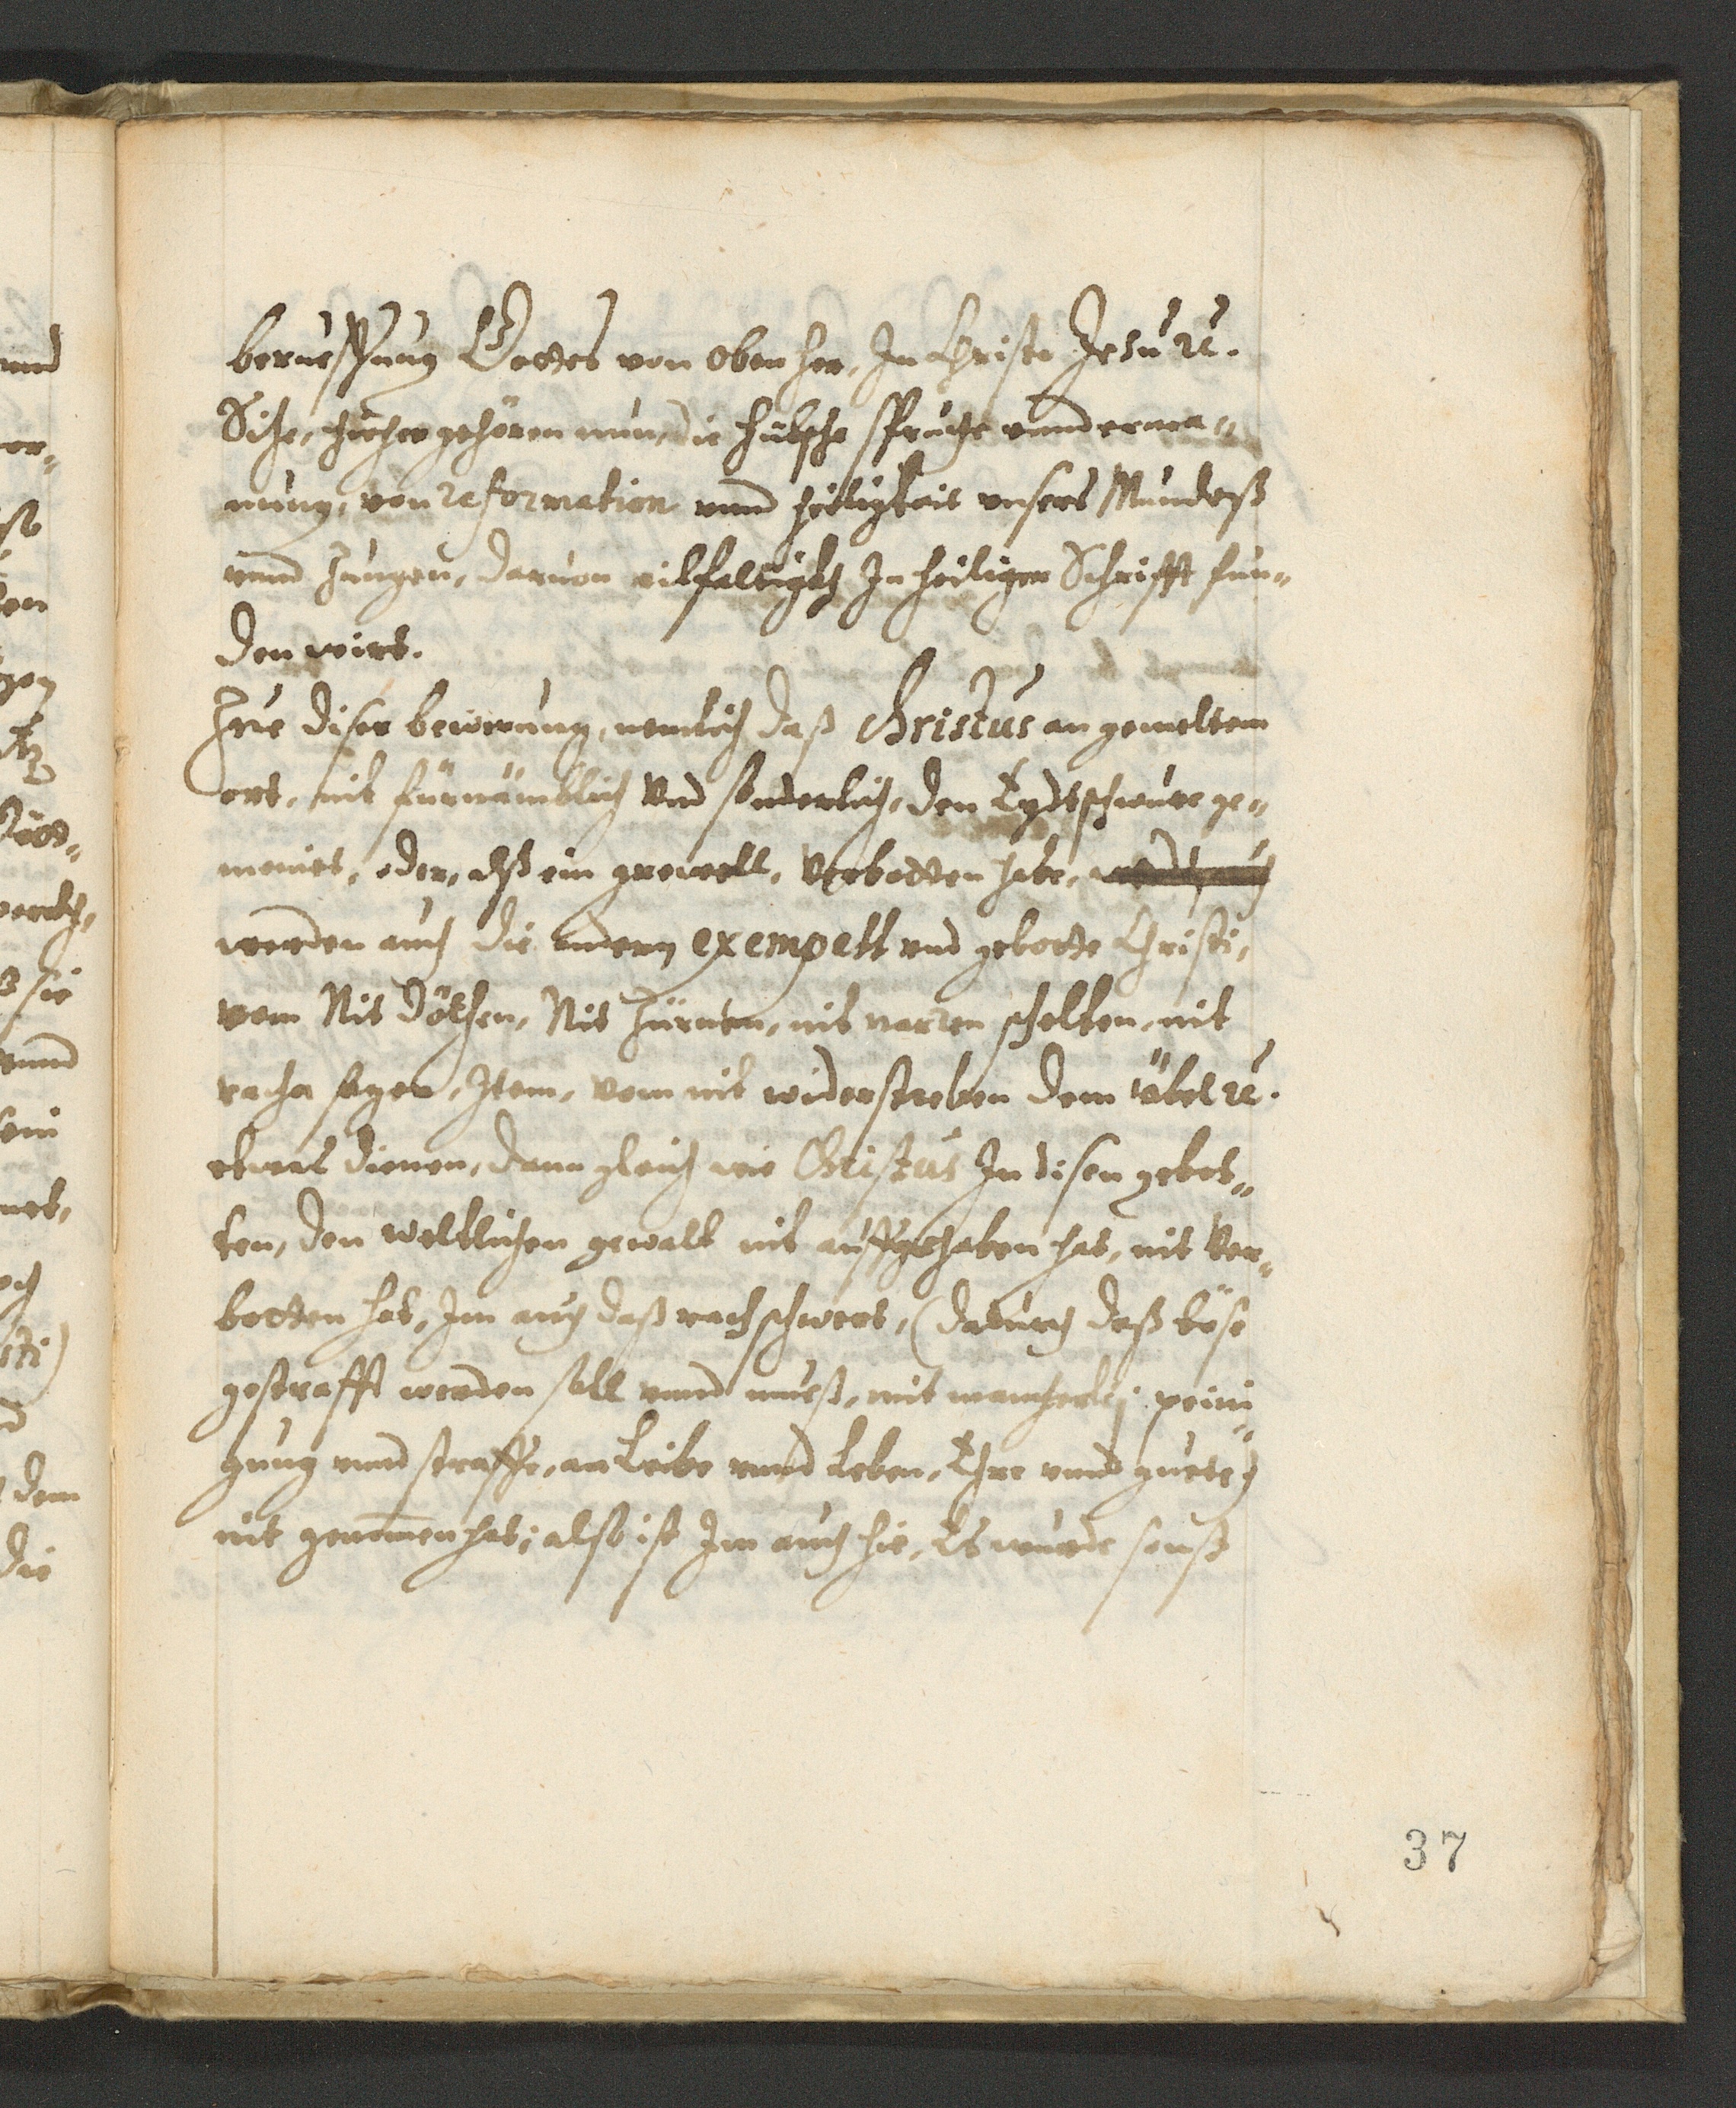 berueffung Gottes von oben her, In Christo Jesu ꝛc.
Sihe, hieher gehören nun, die hübsche spruche vnnd erma„
nung, von reformation vnnd heiligkeit vnsers Mundeß
vnnd Zungen, daruon vilfaltigklich In heiliger Schrifft fun„
den wirt.
Zue diser bewerung, nemlich daß Christus an gemeltem
ort, nit fürnämblich Vnd sonderlich, den Eydtschwure ge„
meinet, oder, alß ein grewell, Verbotten habe,
werden auch die andern exempell vnd gebotte Christi,
vom Nit Döthen, Nit Zürnen, nit narren schelten, nit
racha sagen, Item, vom nit widerstreben dem übel ꝛc.
etwas dienen, dann gleich wie Christus In disen gebot„
ten, den weltlichen gewalt nit auffgehaben hat, nit Ver„
botten hat, Im auch daß rachschwert, (dadurch daß böse
gestrafft werden soll vnnd mueß, mit mancherlej peini„
gung vnnd straffe, an Leibe vnnd Leben, Ehre vnnd guete)
nit genommen hat; also ist Im auch hie, Es wurde sonß
37
vnnd
dem
die